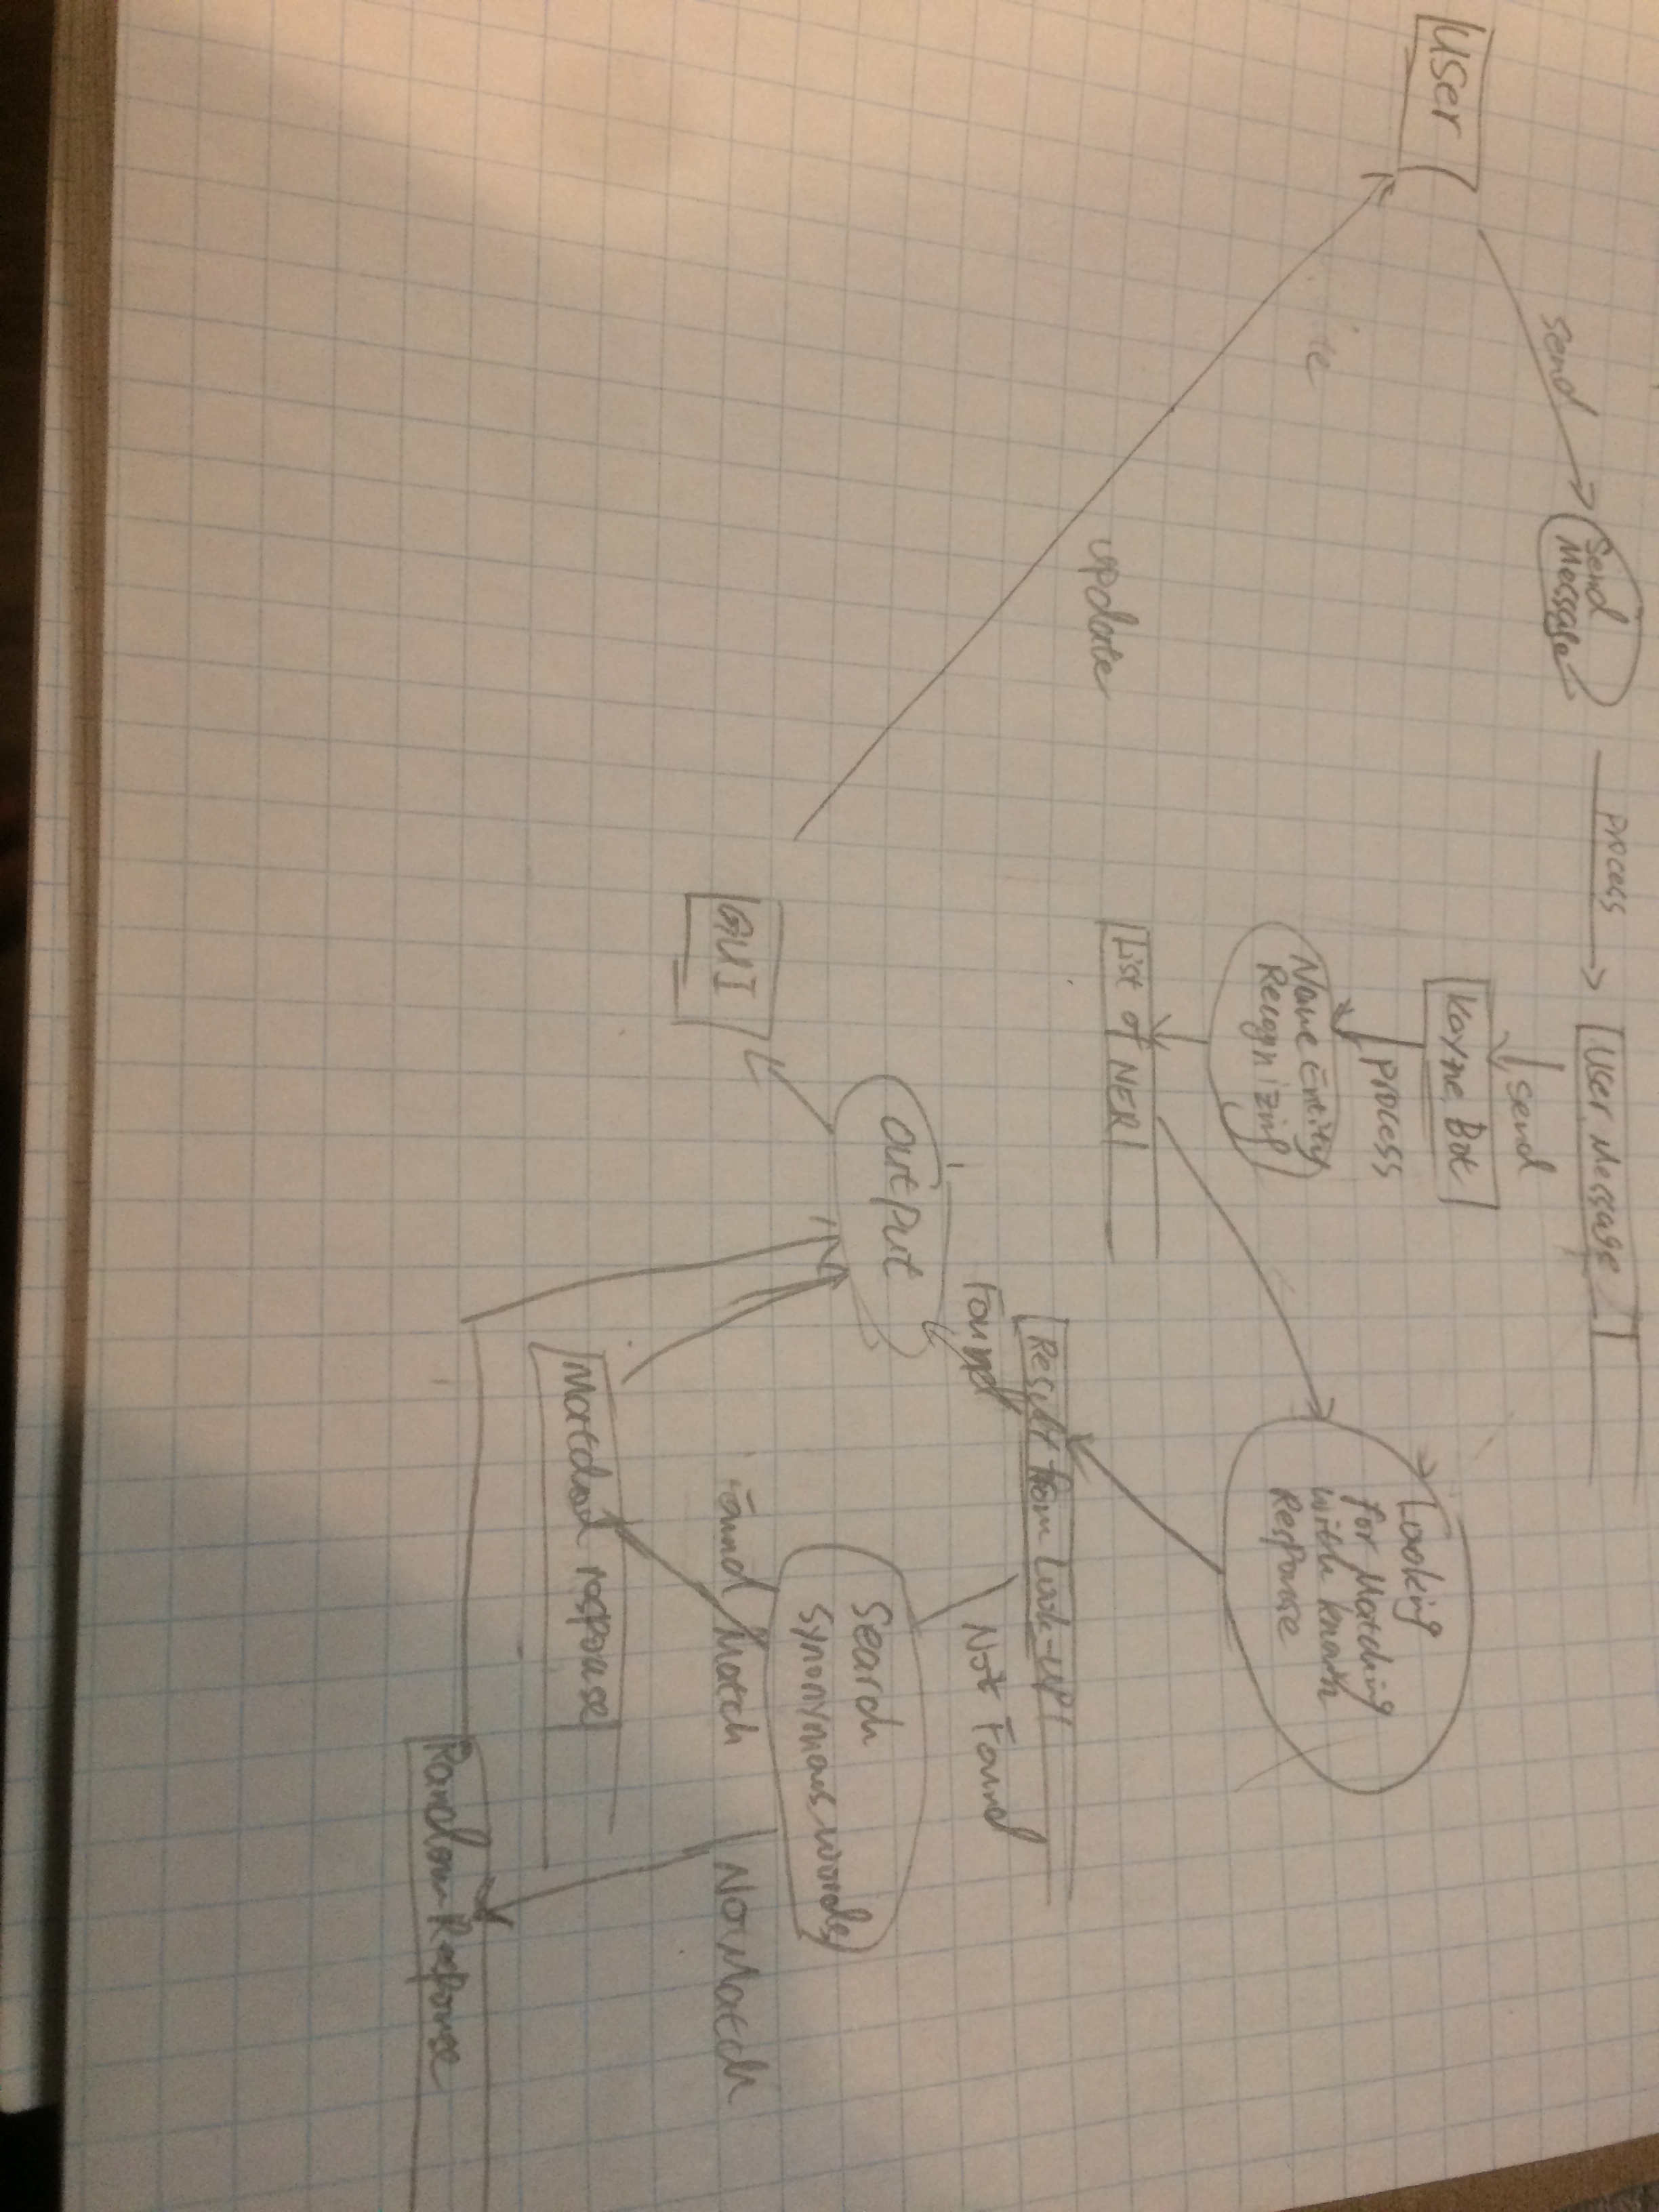 User
send
Send
Message
process
User Message
send
Kayne Bot
process
Name Entity
Recognizing
List of NER
Looking
for Matching
with
Response
update
Result from Look-up
Found
Not Found
Output
GUI
Search
synonymous words
Found Match
No Match
Matched response
Random Response